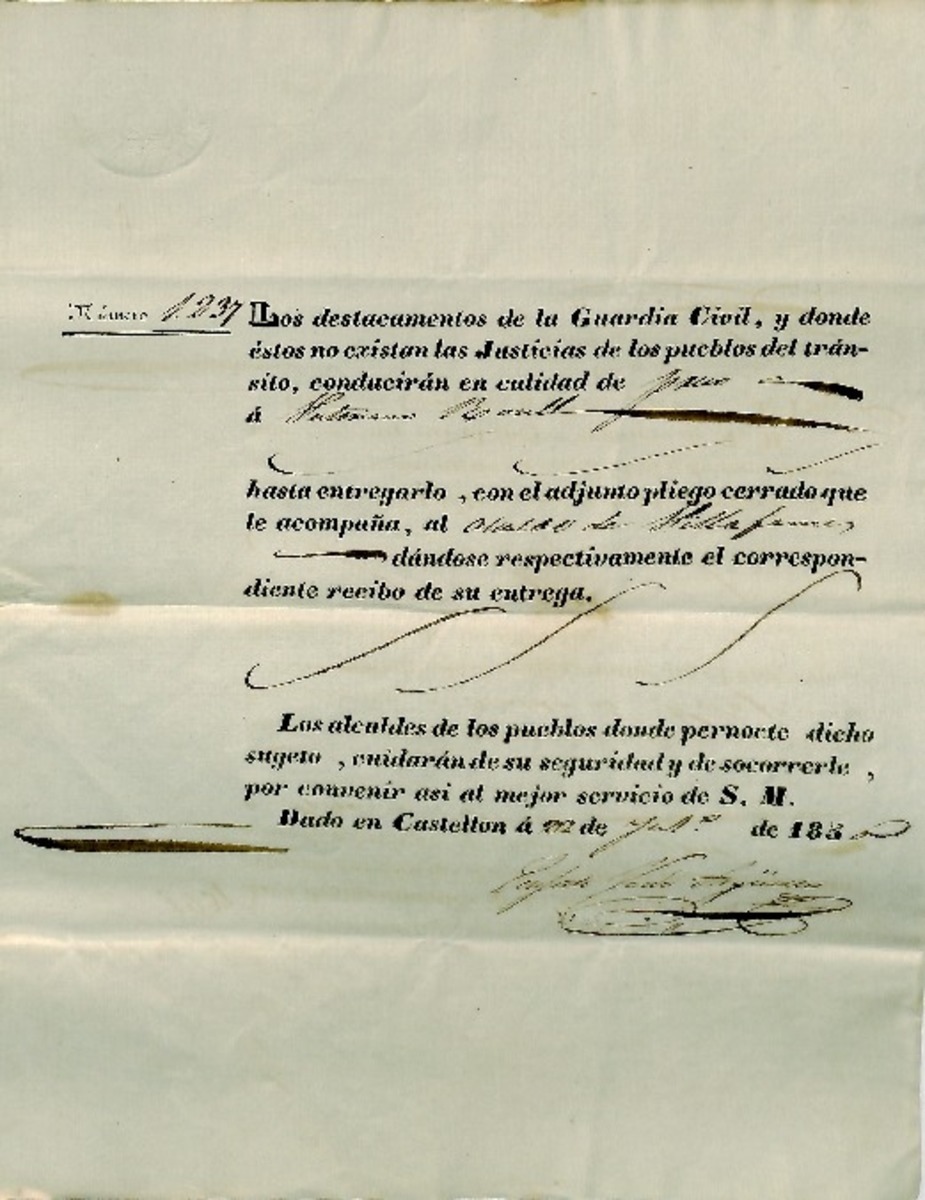 Número 1.237
Los destacamentos de la Guardia Civil, y donde
éstos no existan las Justicias de los pueblos del trán-
sito, conducirán en calidad de preso
á
hasta entregarlo , con el adjunto pliego cerrado que
le acompaña, al
dándose respectivamente el correspon-
diente recibo de su entrega.
Los alcaldes de los pueblos donde pernocte dicho
sugeto , cuidarán de su seguridad y de socorrerle ,
por convenir asi al mejor servicio de S. M.
Dado en Castellon á de de 185